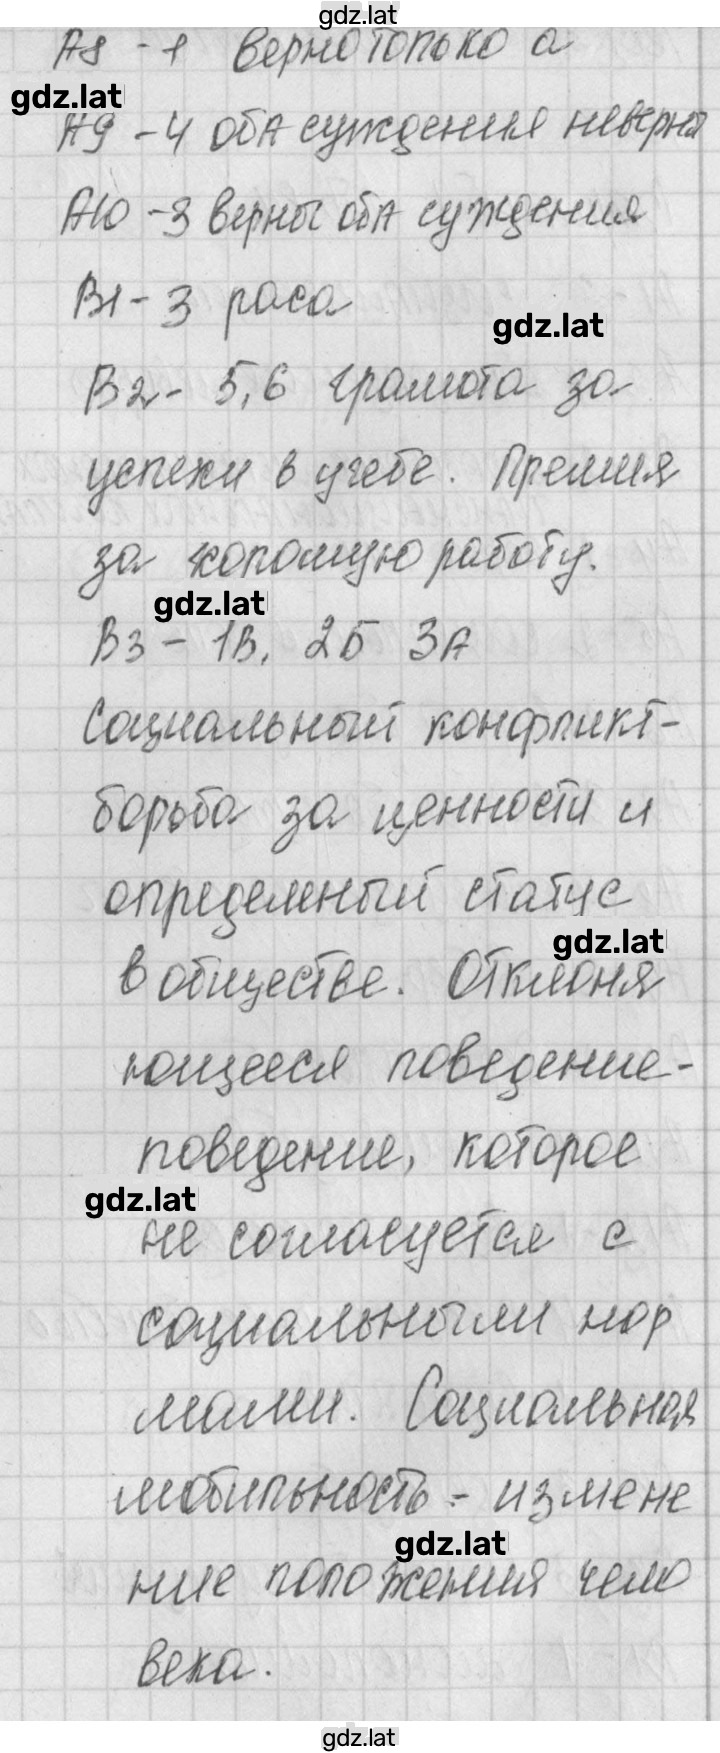 gdz.lat
А8 - 1 верно только а
gdz.lat
А9 - 4 оба суждения неверны
А10 - 3 верны оба суждения
В1 - 3 раса
gdz.lat
В2 - 5,6 грамота за
успехи в учебе. Премия
за хорошую работу.
gdz.lat
В3 - 1В, 2Б 3А
Социальный конфликт -
борьба за ценности и
определенный статус
gdz.lat
в обществе. Отклоня
ющееся поведение -
поведение, которое
gdz.lat
не согласуется с
социальными нор
мами. Социальная
мобильность - измене
gdz.lat
ние положения чело
века.
gdz.lat